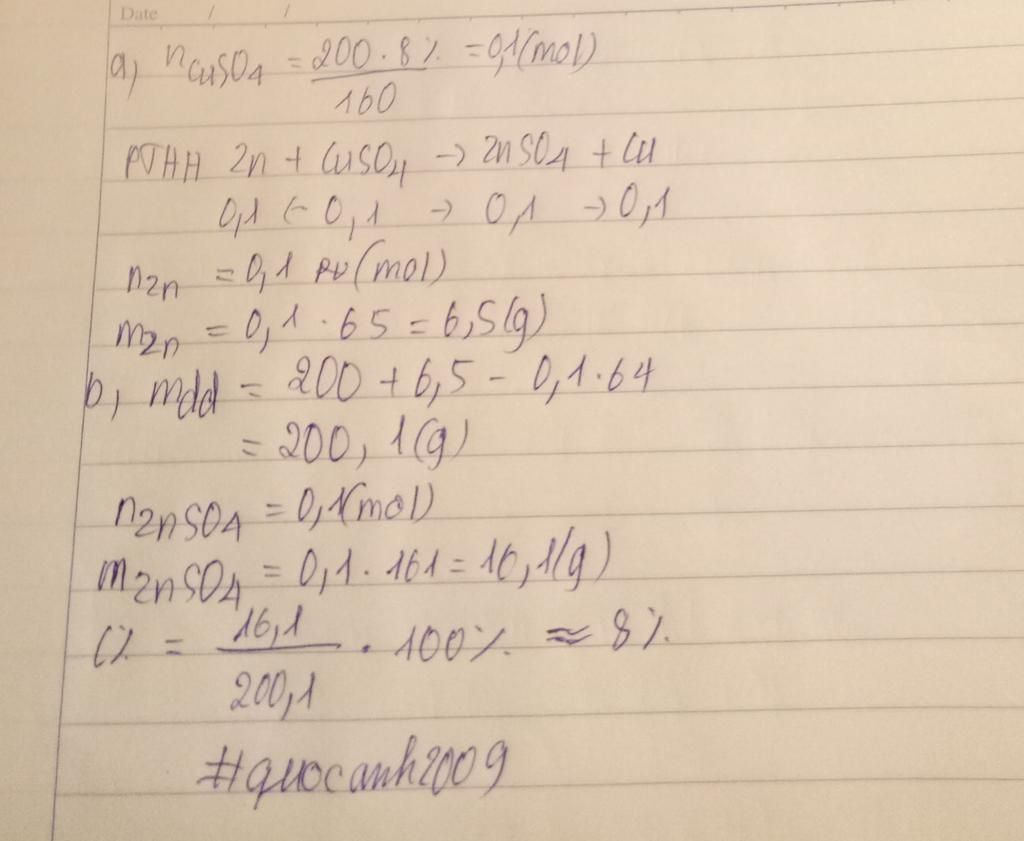 Date / /
a, nCuSO4 = 200 . 8% / 160 = 0,1(mol)
PTHH Zn + CuSO4 → ZnSO4 + Cu
0,1 ← 0,1 → 0,1 → 0,1
nZn = 0,1 (mol)
mZn = 0,1 . 65 = 6,5(g)
b, mdd = 200 + 6,5 - 0,1.64
= 200,1(g)
nZnSO4 = 0,1(mol)
mZnSO4 = 0,1. 161 = 16,1(g)
C% = 16,1 / 200,1 . 100% ≈ 8%
#quocanh2009